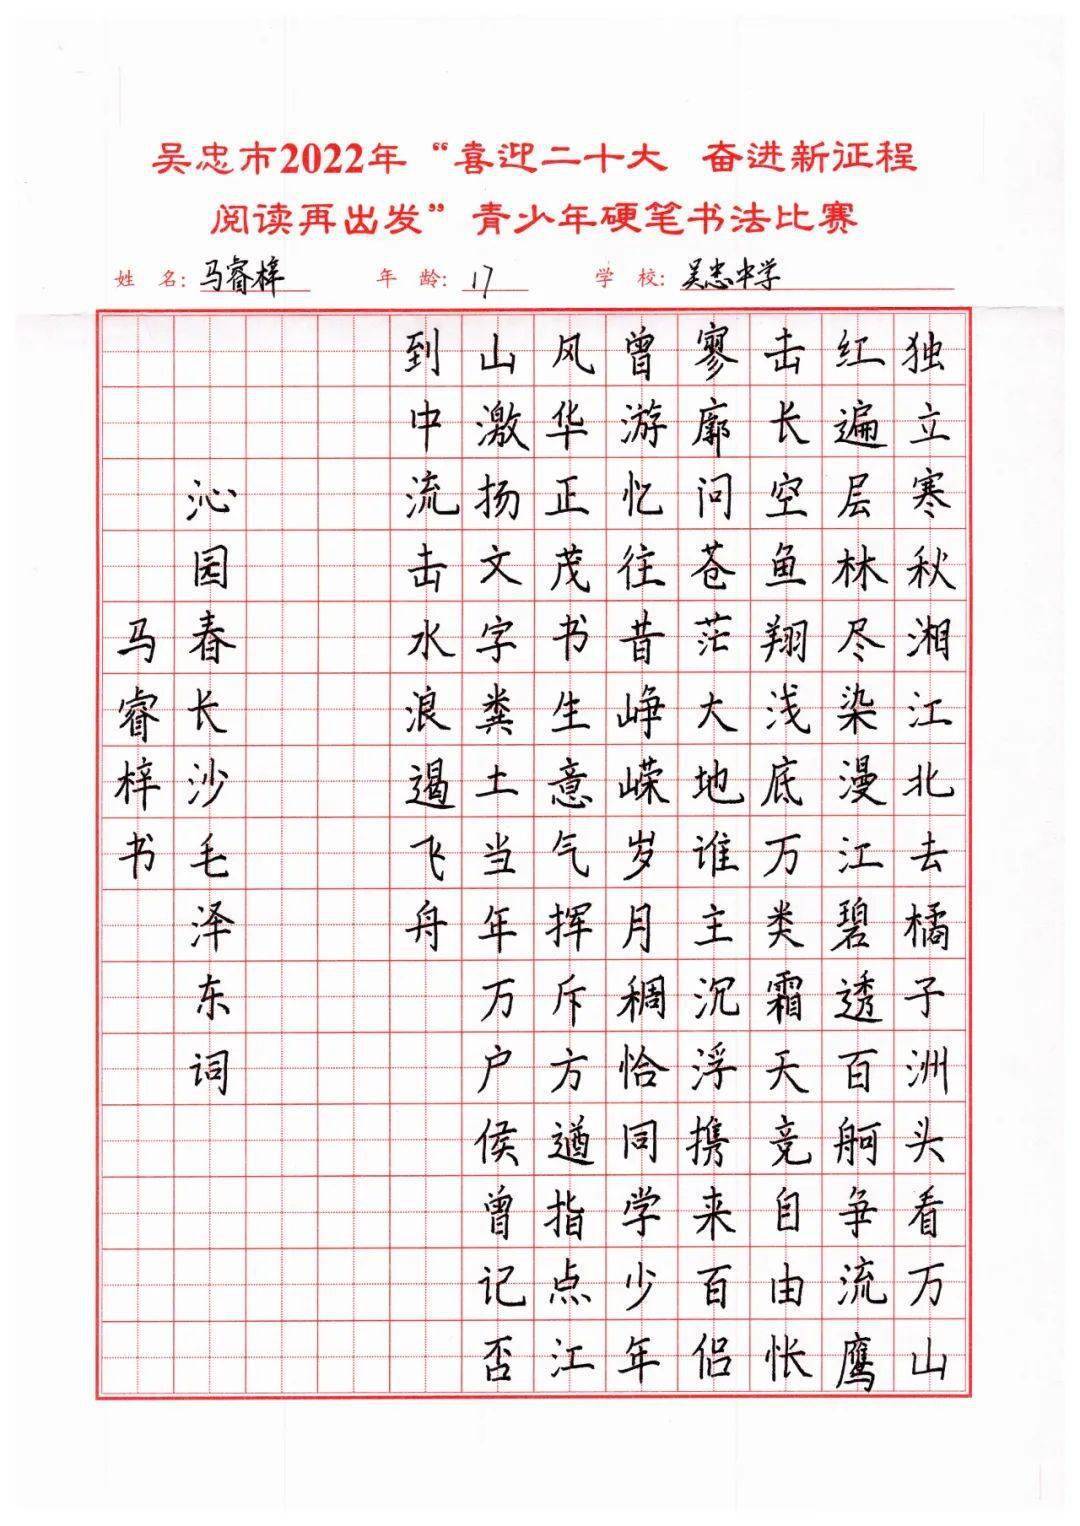 吴忠市2022年“喜迎二十大 奋进新征程
阅读再出发”青少年硬笔书法比赛
姓 名: 马睿梓 年 龄: 17 学 校: 吴忠中学
独立寒秋湘江北去橘子洲头看万山
红遍层林尽染漫江碧透百舸争流鹰
击长空鱼翔浅底万类霜天竞自由怅
寥廓问苍茫大地谁主沉浮携来百侣
曾游忆往昔峥嵘岁月稠恰同学少年
风华正茂书生意气挥斥方遒指点江
山激扬文字粪土当年万户侯曾记否
到中流击水浪遏飞舟
沁园春长沙毛泽东词
马睿梓书